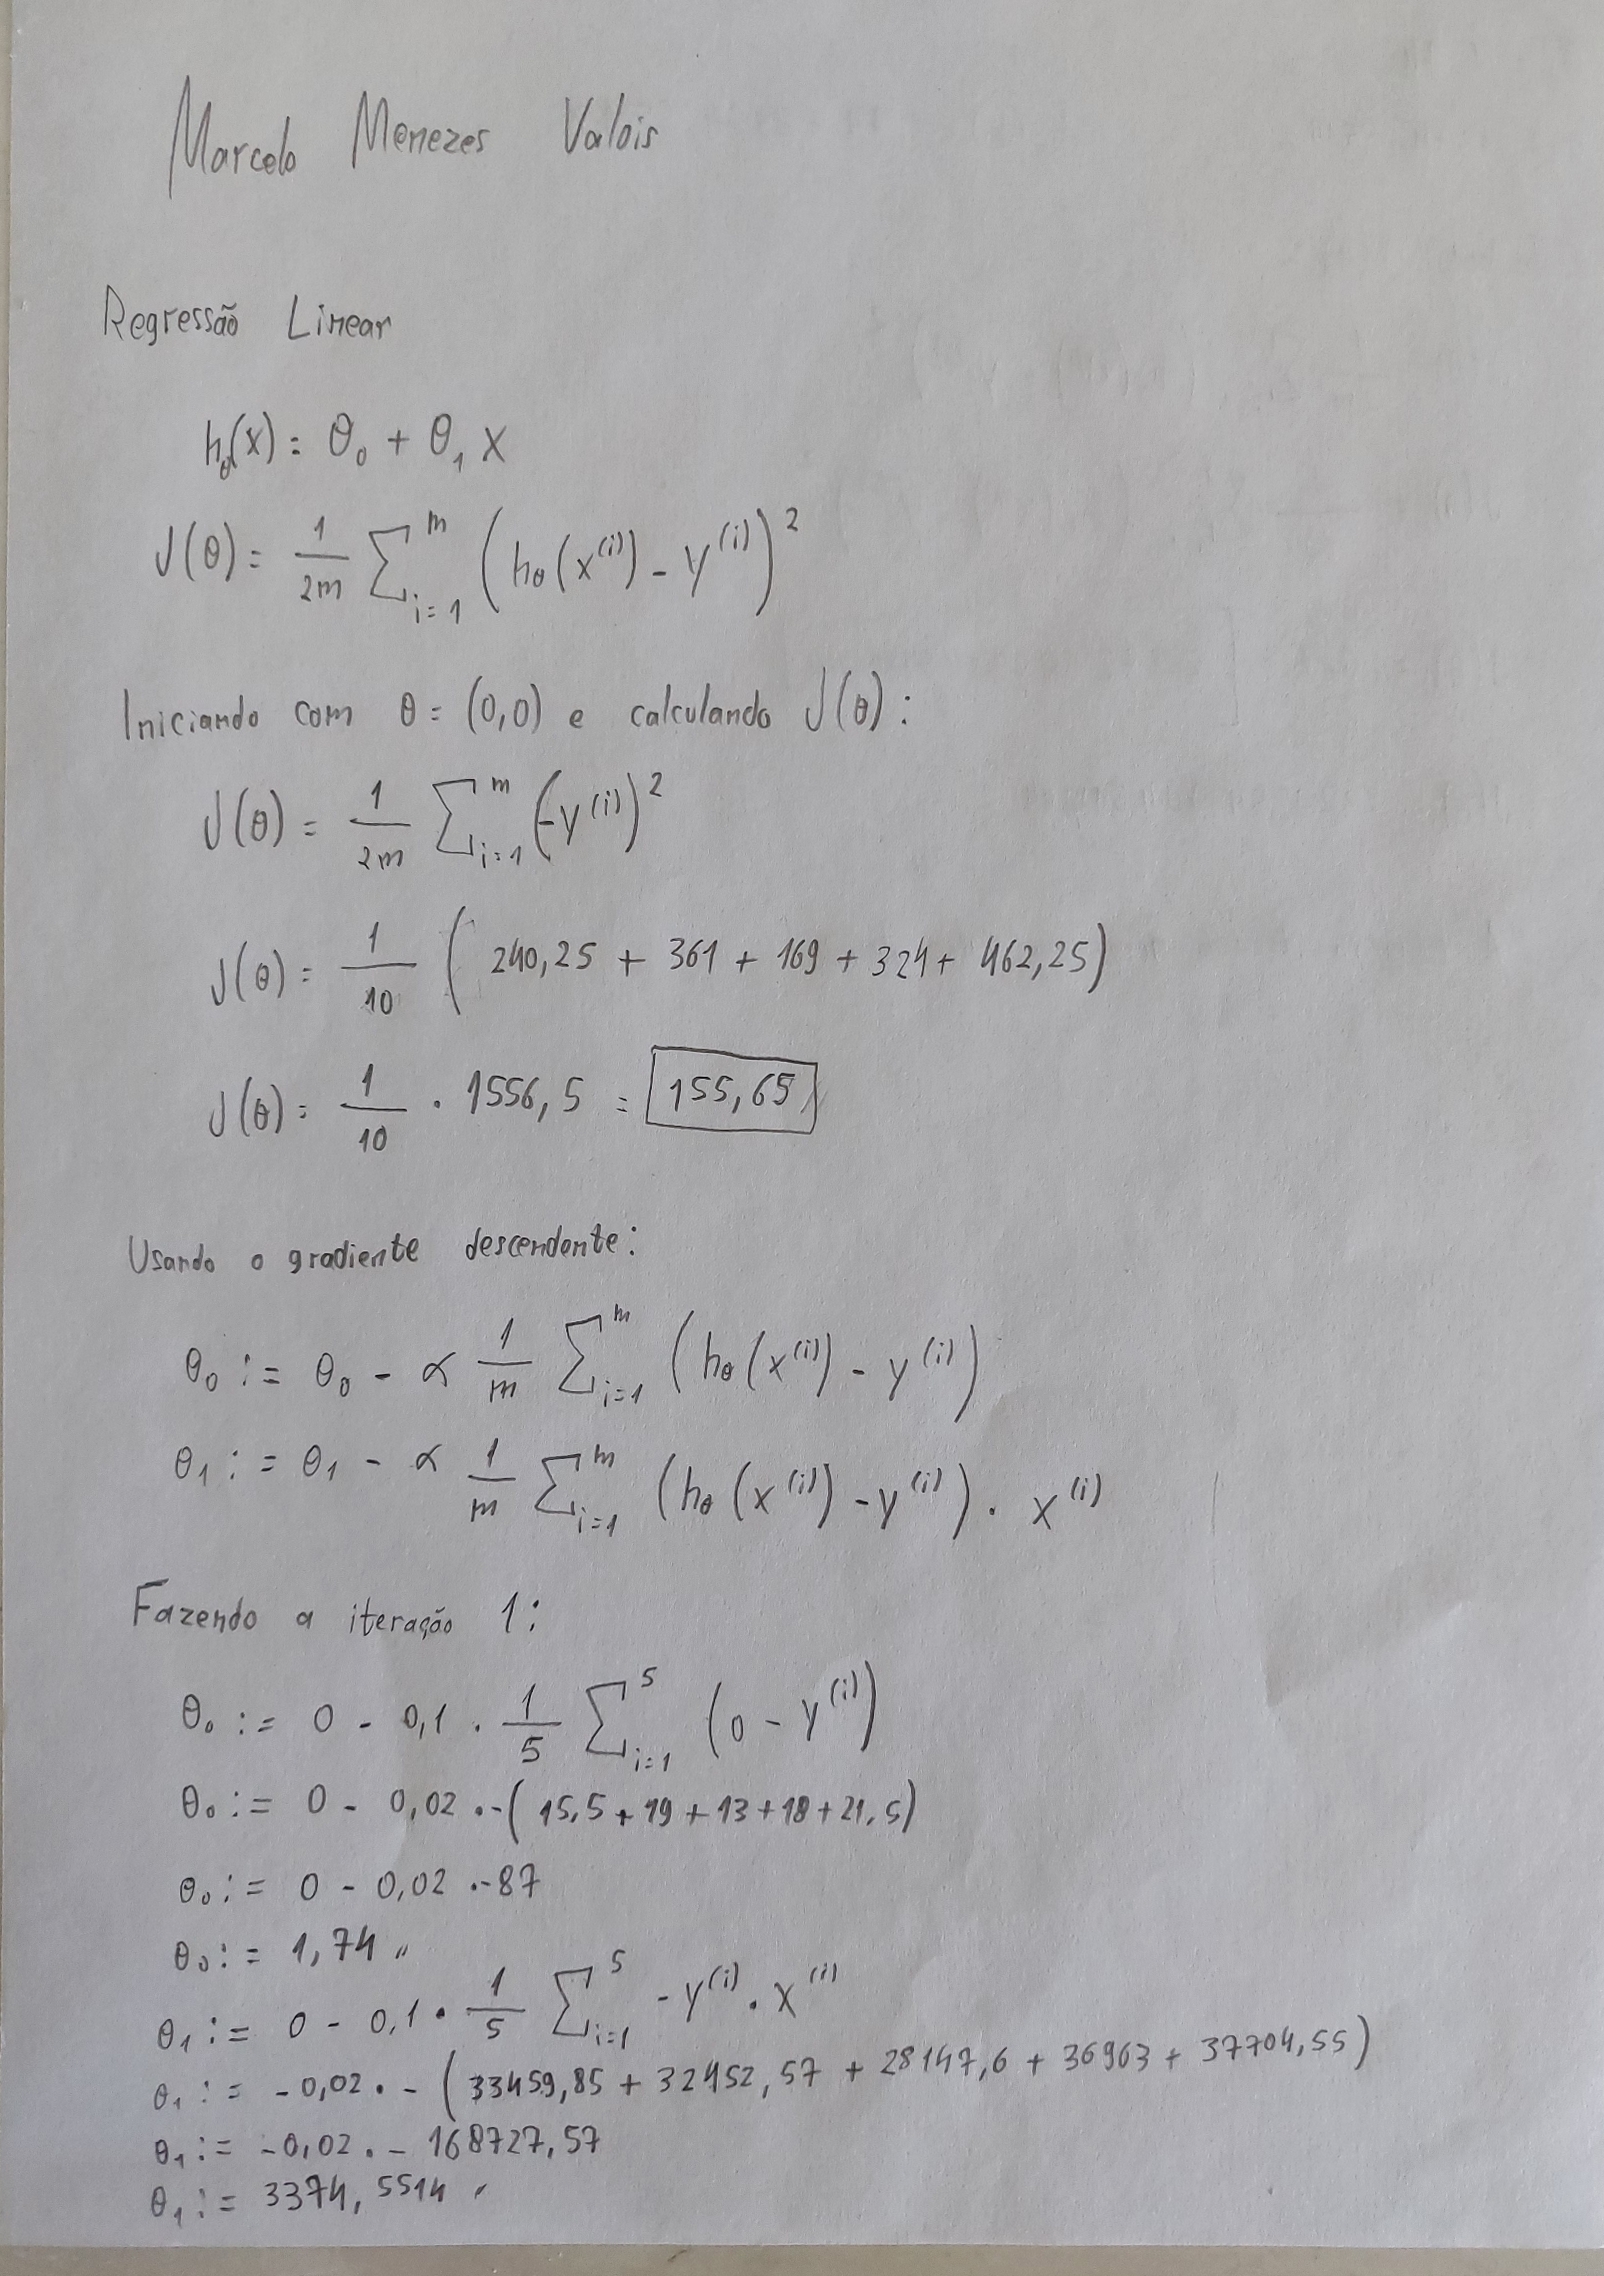 Marcelo Menezes Valois
Regressão Linear
hθ(x) = θ₀ + θ₁ x
J(θ) = 1/2m ∑ᵢ₌₁ᵐ (hθ(x⁽ⁱ⁾) - y⁽ⁱ⁾)²
Iniciando com θ = (0,0) e calculando J(θ):
J(θ) = 1/2m ∑ᵢ₌₁ᵐ (-y⁽ⁱ⁾)²
J(θ) = 1/10 (240,25 + 361 + 169 + 324 + 462,25)
J(θ) = 1/10 . 1556,5 = 155,65
Usando o gradiente descendente:
θ₀ := θ₀ - α 1/m ∑ᵢ₌₁ᵐ (hθ(x⁽ⁱ⁾) - y⁽ⁱ⁾)
θ₁ := θ₁ - α 1/m ∑ᵢ₌₁ᵐ (hθ(x⁽ⁱ⁾) - y⁽ⁱ⁾) . x⁽ⁱ⁾
Fazendo a iteração 1:
θ₀ := 0 - 0,1 . 1/5 ∑ᵢ₌₁⁵ (0 - y⁽ⁱ⁾)
θ₀ := 0 - 0,02 . -(15,5 + 19 + 13 + 18 + 21,5)
θ₀ := 0 - 0,02 . -87
θ₀ := 1,74 〃
θ₁ := 0 - 0,1 . 1/5 ∑ᵢ₌₁⁵ - y⁽ⁱ⁾ . x⁽ⁱ⁾
θ₁ := -0,02 . - (33459,85 + 32452,57 + 28147,6 + 36963 + 37704,55)
θ₁ := -0,02 . - 168727,57
θ₁ := 3374,5514 〃